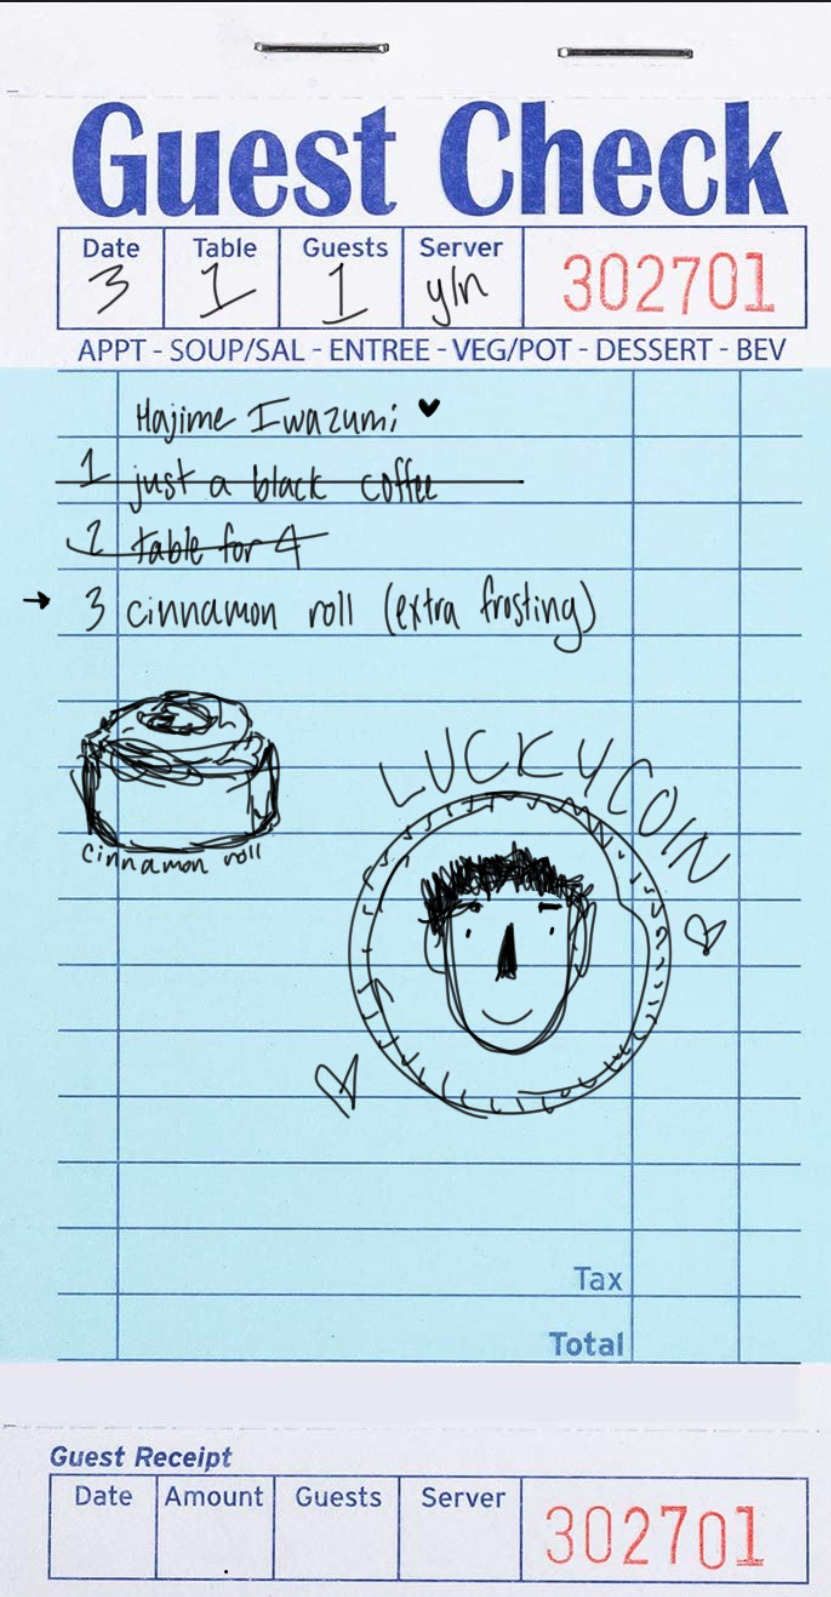 Guest Check
Date Table Guests Server
3 1 1 y/n 302701
APPT - SOUP/SAL - ENTREE - VEG/POT - DESSERT - BEV
Hajime Iwazumi ♥
1 just a black coffee
2 table for 4
→ 3 cinnamon roll (extra frosting)
LUCKY COIN
cinnamon roll
Tax
Total
Guest Receipt
Date Amount Guests Server 302701